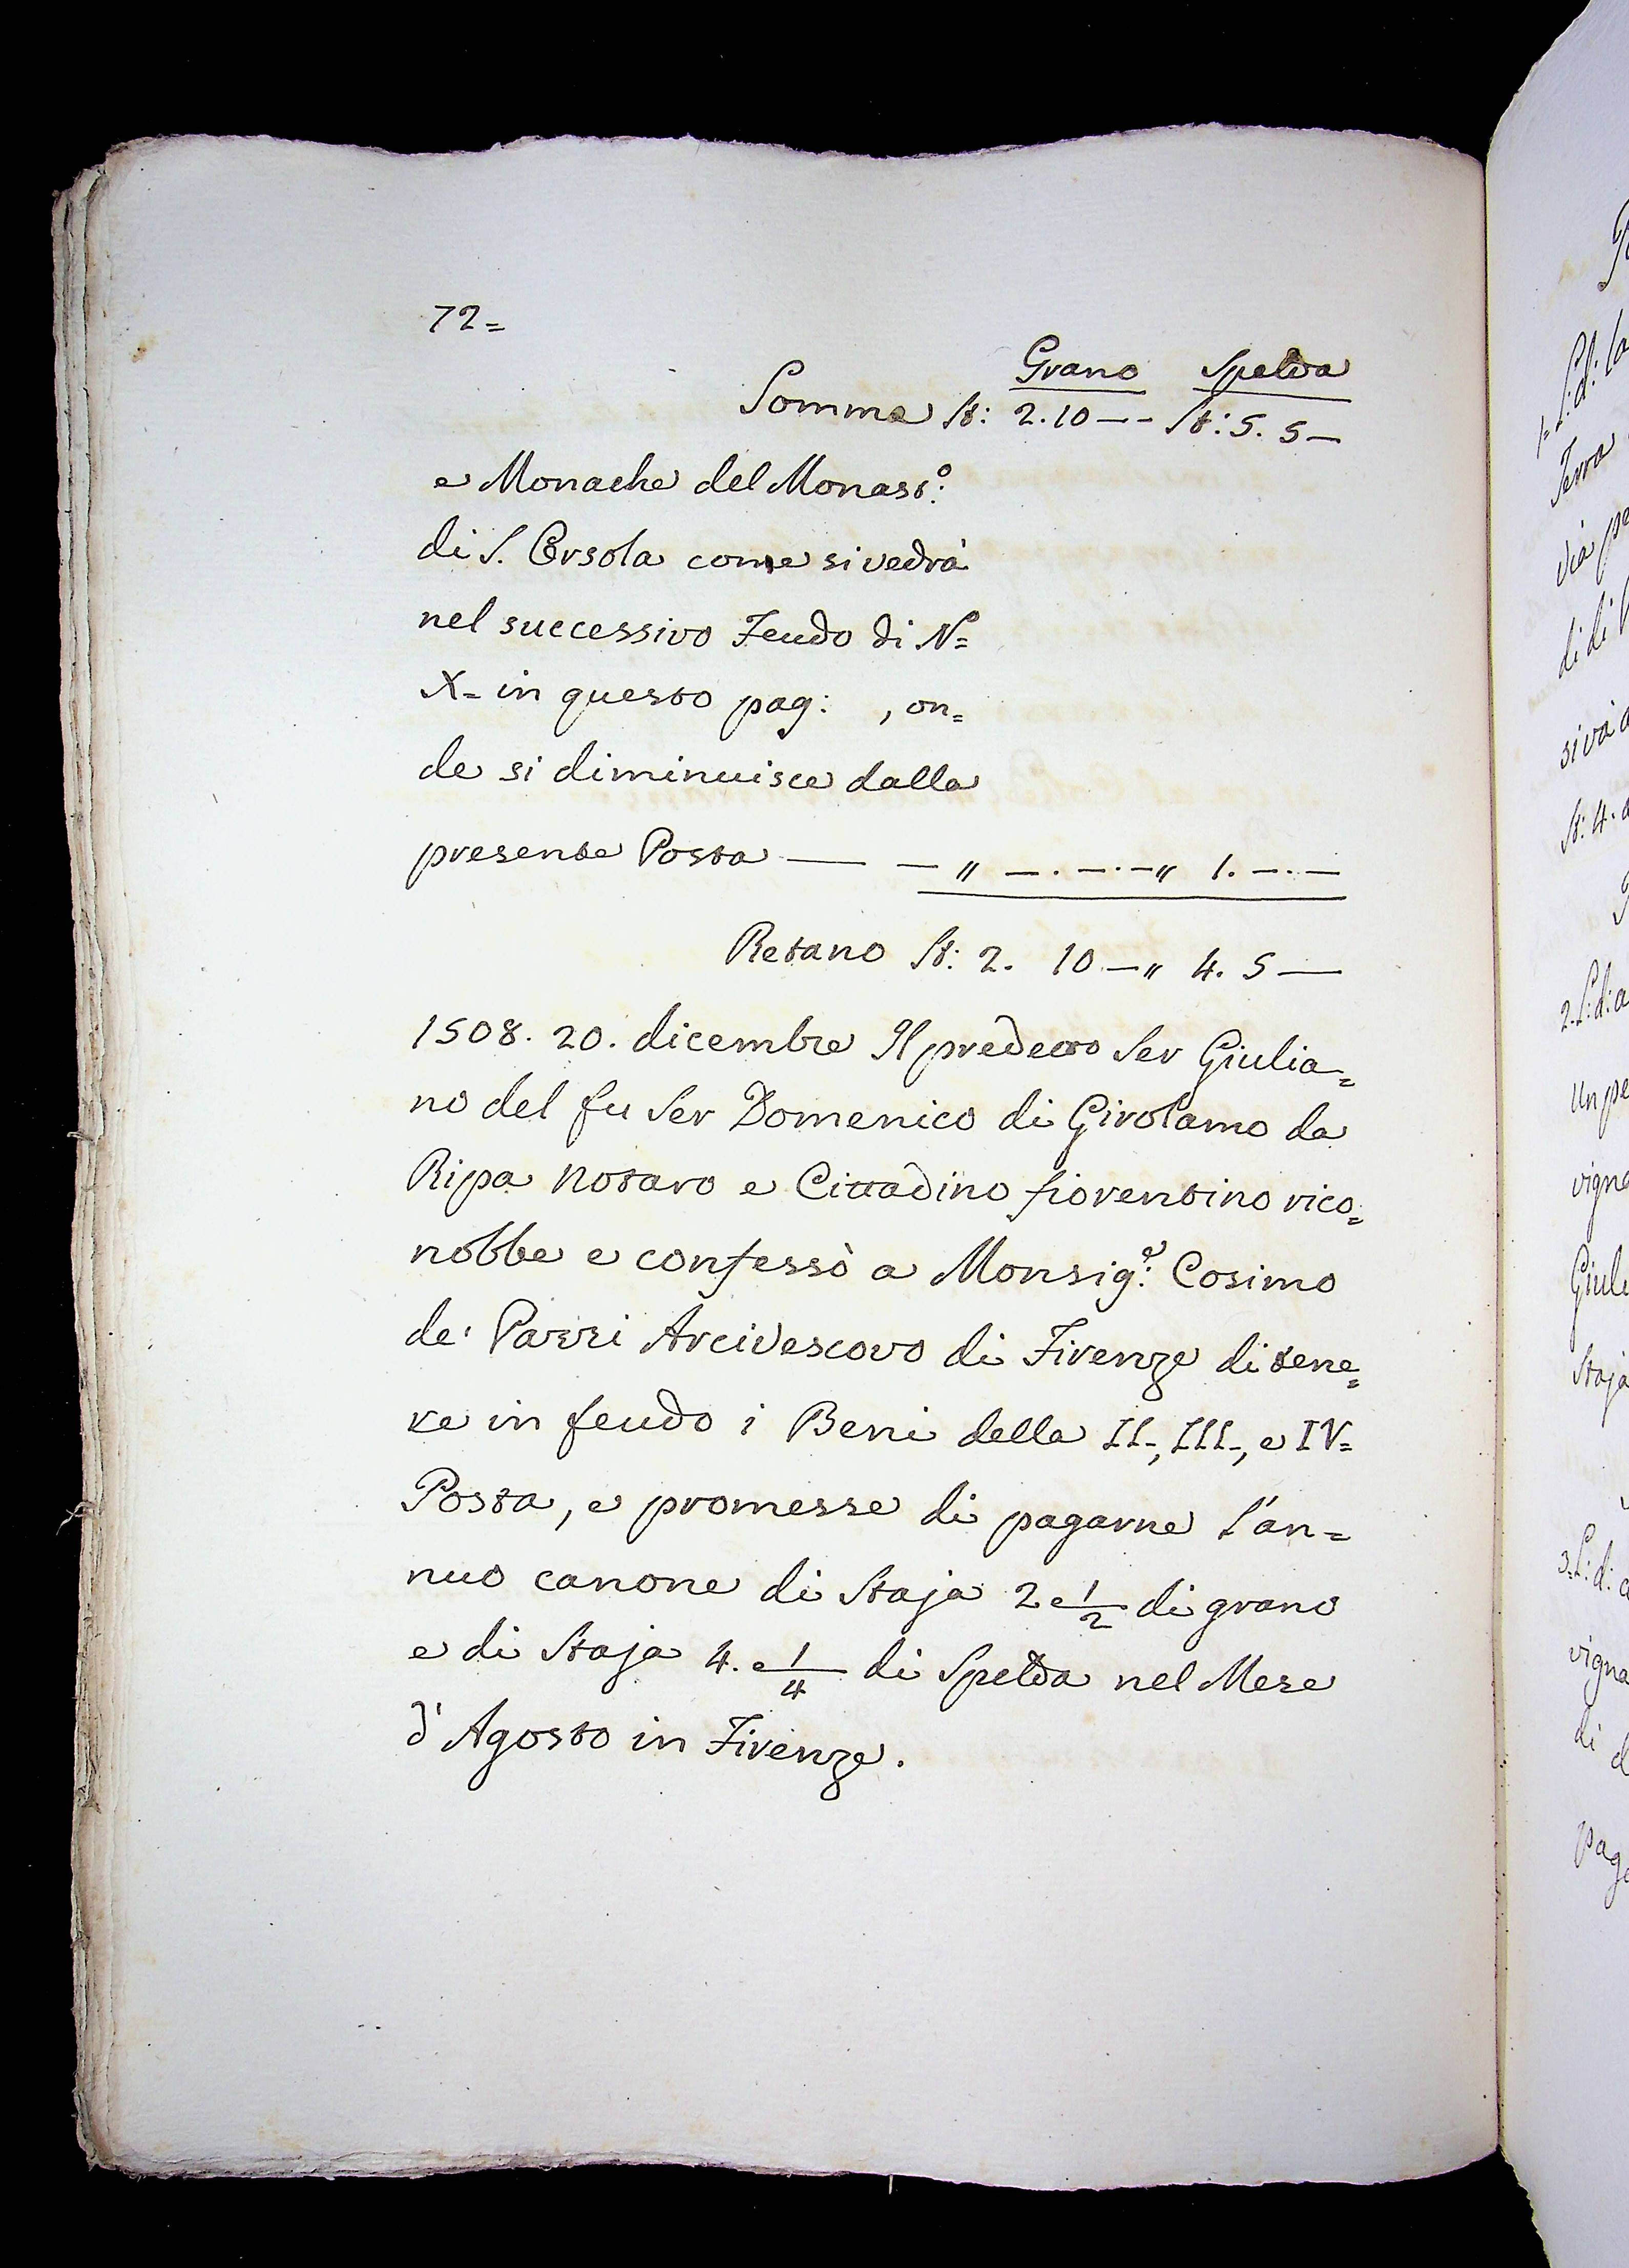 72=
Grano Spelda
Somma St: 2. 10 — - St: 5. 5 —
e Monache del Monast:º
di S. Orsola come si vedrà
nel successivo Feudo di N=
X= in questo pag: , on=
de si diminuisce dalla
presente Posta — — " — . — . — " 1. — . —
Retano St: 2. 10 — " 4. 5 —
1508. 20. dicembre Il predetto Ser Giulia=
no del fu Ser Domenico di Girolamo da
Ripa Notaro e Cittadino fiorentino rico=
nobbe e confessò a Monsig:e Cosimo
de' Pazzi Arcivescovo di Firenze di tene=
re in feudo i Beni della II=, III=, e IV=
Posta, e promesse di pagarne l'an=
nuo canone di Staja 2 e 1/2 di grano
e di Staja 4. e 1/4 di Spelda nel Mese
d'Agosto in Firenze.